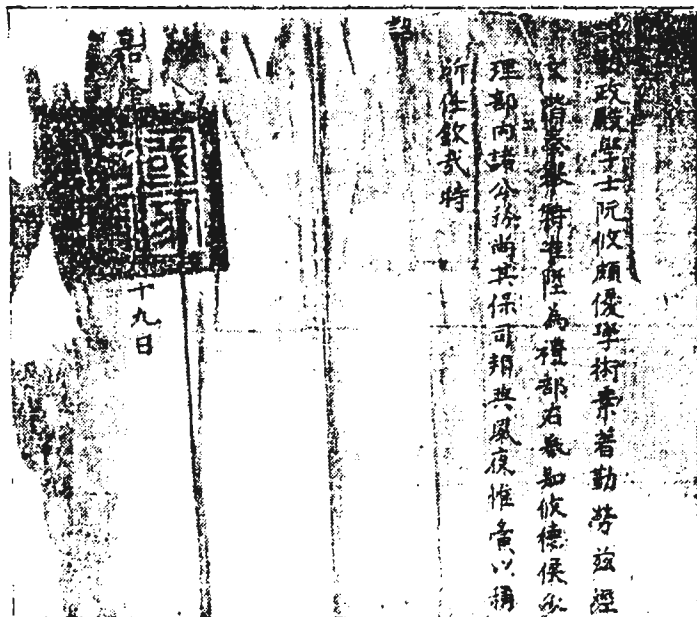 勤政殿學士阮攸頗優學術素著勤勞茲經
文階奉舉特準陞為禮部右參知攸德侯
理部內諸公務尚其保司朝典夙夜惟寅以稱
所任欽哉特
嘉隆十九日